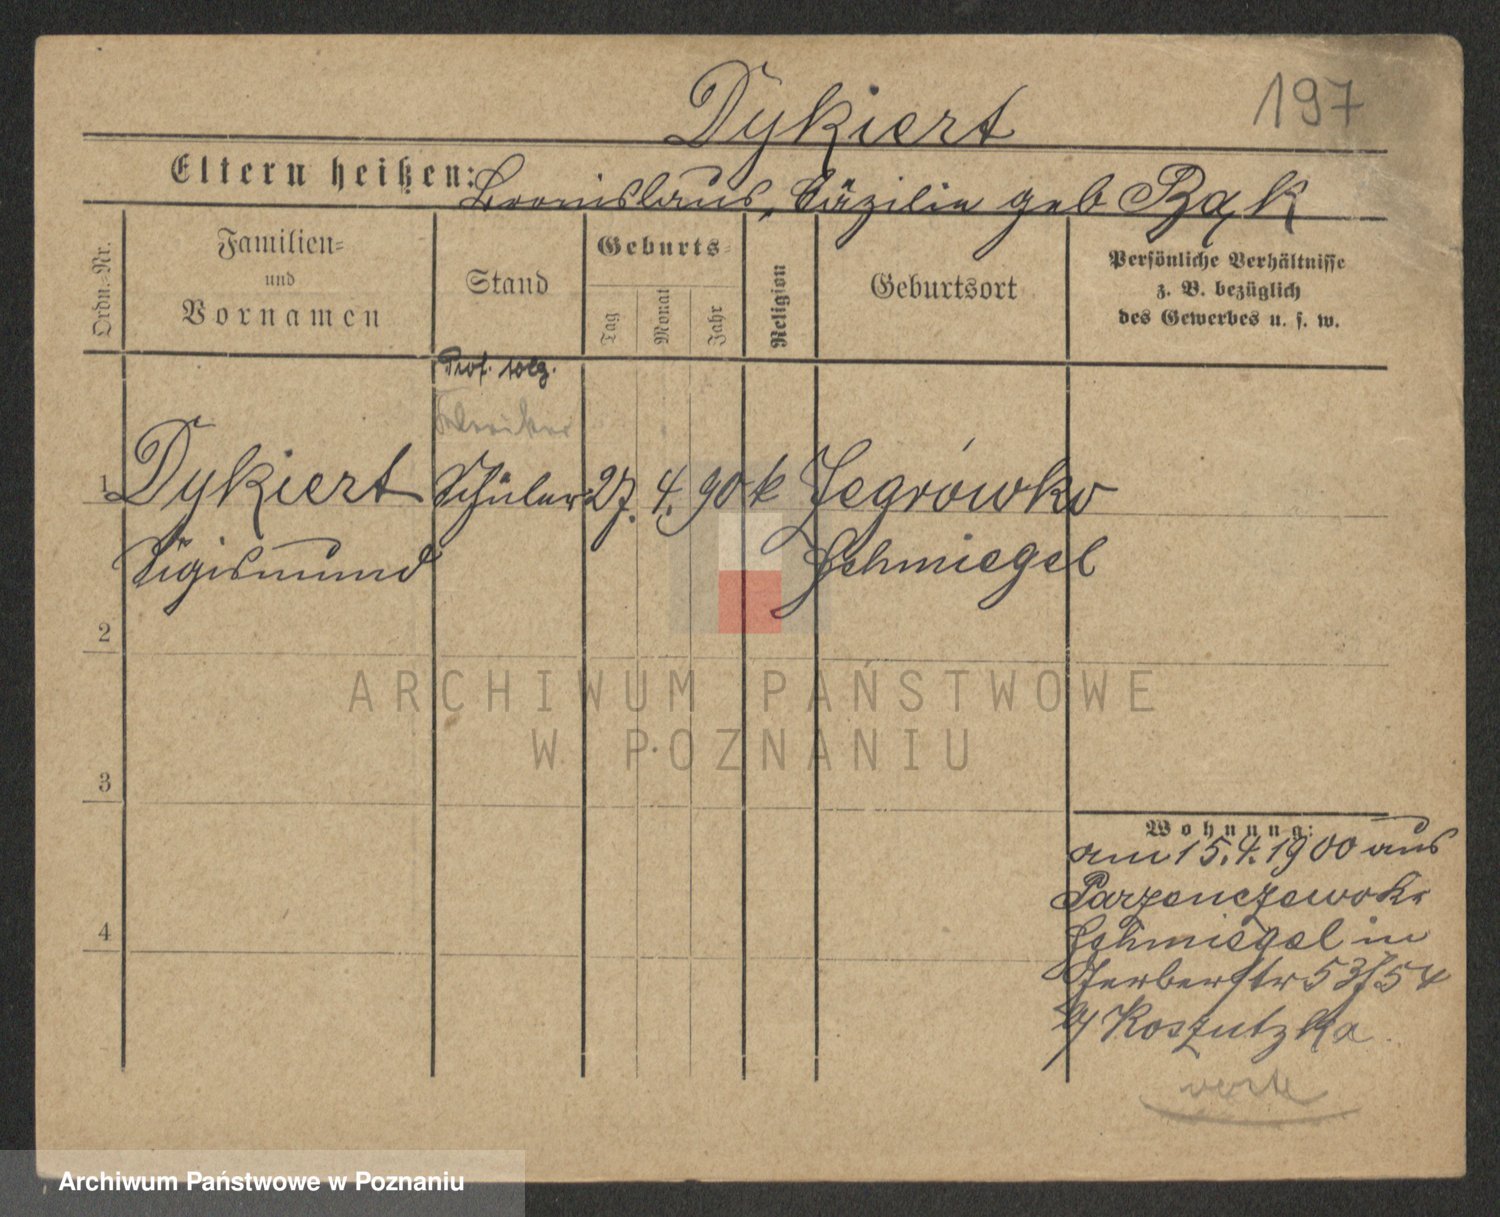 Dykiert
197
Eltern heißen: Bronislaus, Cäzilie geb Bąk
Ordn.-Nr.
Familien-
und
Vornamen
Stand
Geburts-
Tag
Monat
Jahr
Religion
Geburtsort
Persönliche Verhältnisse
z. B. bezüglich
des Gewerbes u. s. w.
1 Dykiert Schüler 27. 4. 90 k Zegrówko
Sigismund Schmiegel
2
3
4
Wohnung:
am 15.4.1900 aus
Parzenczewo Kr
Schmiegel in
Gerberstr 53/54
b/ Koszutzka
ARCHIWUM PAŃSTWOWE
W POZNANIU
Archiwum Państwowe w Poznaniu